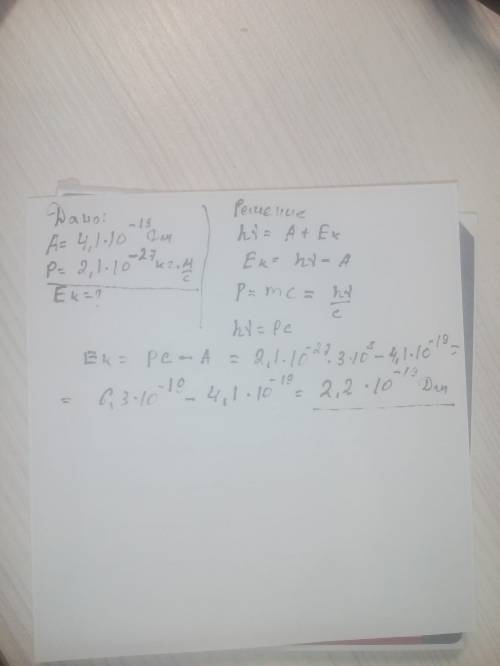 Дано:
A = 4,1·10⁻¹⁹ Дж
P = 2,1·10⁻²⁷ кг·м/с
Eк = ?
Решение
hν = A + Eк
Eк = hν - A
P = mc = hν/c
hν = Pc
Eк = Pc - A = 2,1·10⁻²⁷·3·10⁸ - 4,1·10⁻¹⁹ =
= 6,3·10⁻¹⁹ - 4,1·10⁻¹⁹ = 2,2·10⁻¹⁹ Дж